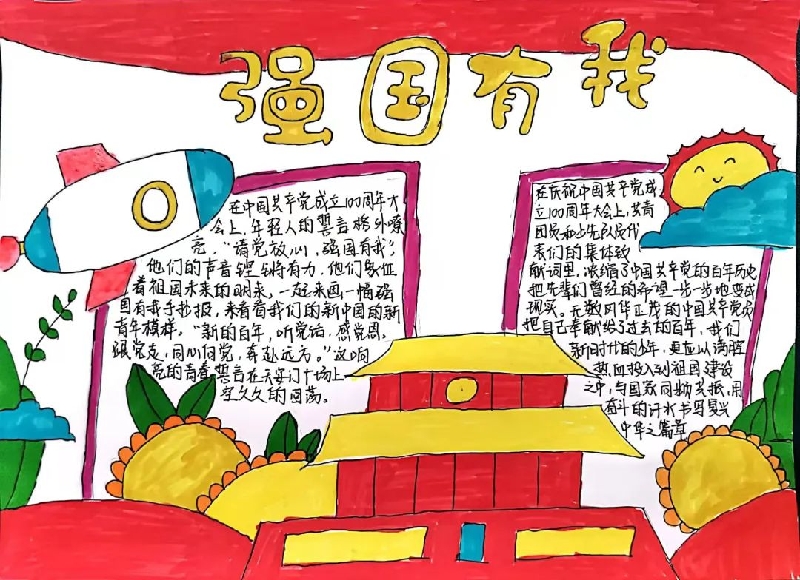 强国有我
在中国共产党成立100周年大
会上，年轻人的誓言格外嘹
亮。“请党放心，强国有我”，
他们的声音铿锵有力，他们象征
着祖国未来的明来，一起来画一幅强
国有我手抄报，来看看我们的新中国的新
青年模样，“新的百年，听党话，感党恩，
跟党走，同心向党，奔赴远方。”这响
亮的青春誓言在天安门广场上
空久久的回荡。
在庆祝中国共产党成
立100周年大会上，共青
团员和少先队员代
表们的集体致
献词里，浓缩了中国共产党的百年历史
把先辈们曾经的希望一步一步地变成
现实。无数风华正茂的中国共产党员
把自己奉献给了过去的百年，我们
新时代的少年，更应以满腔
热血投入到祖国建设
之中，与国家同频共振，用
奋斗的汗水书写复兴
中华之篇章